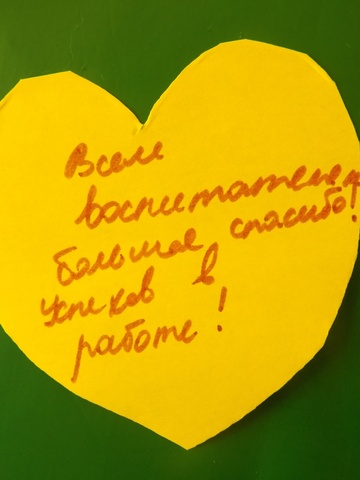 Всем
воспитателем
большое спасибо!
Успехов в
работе!